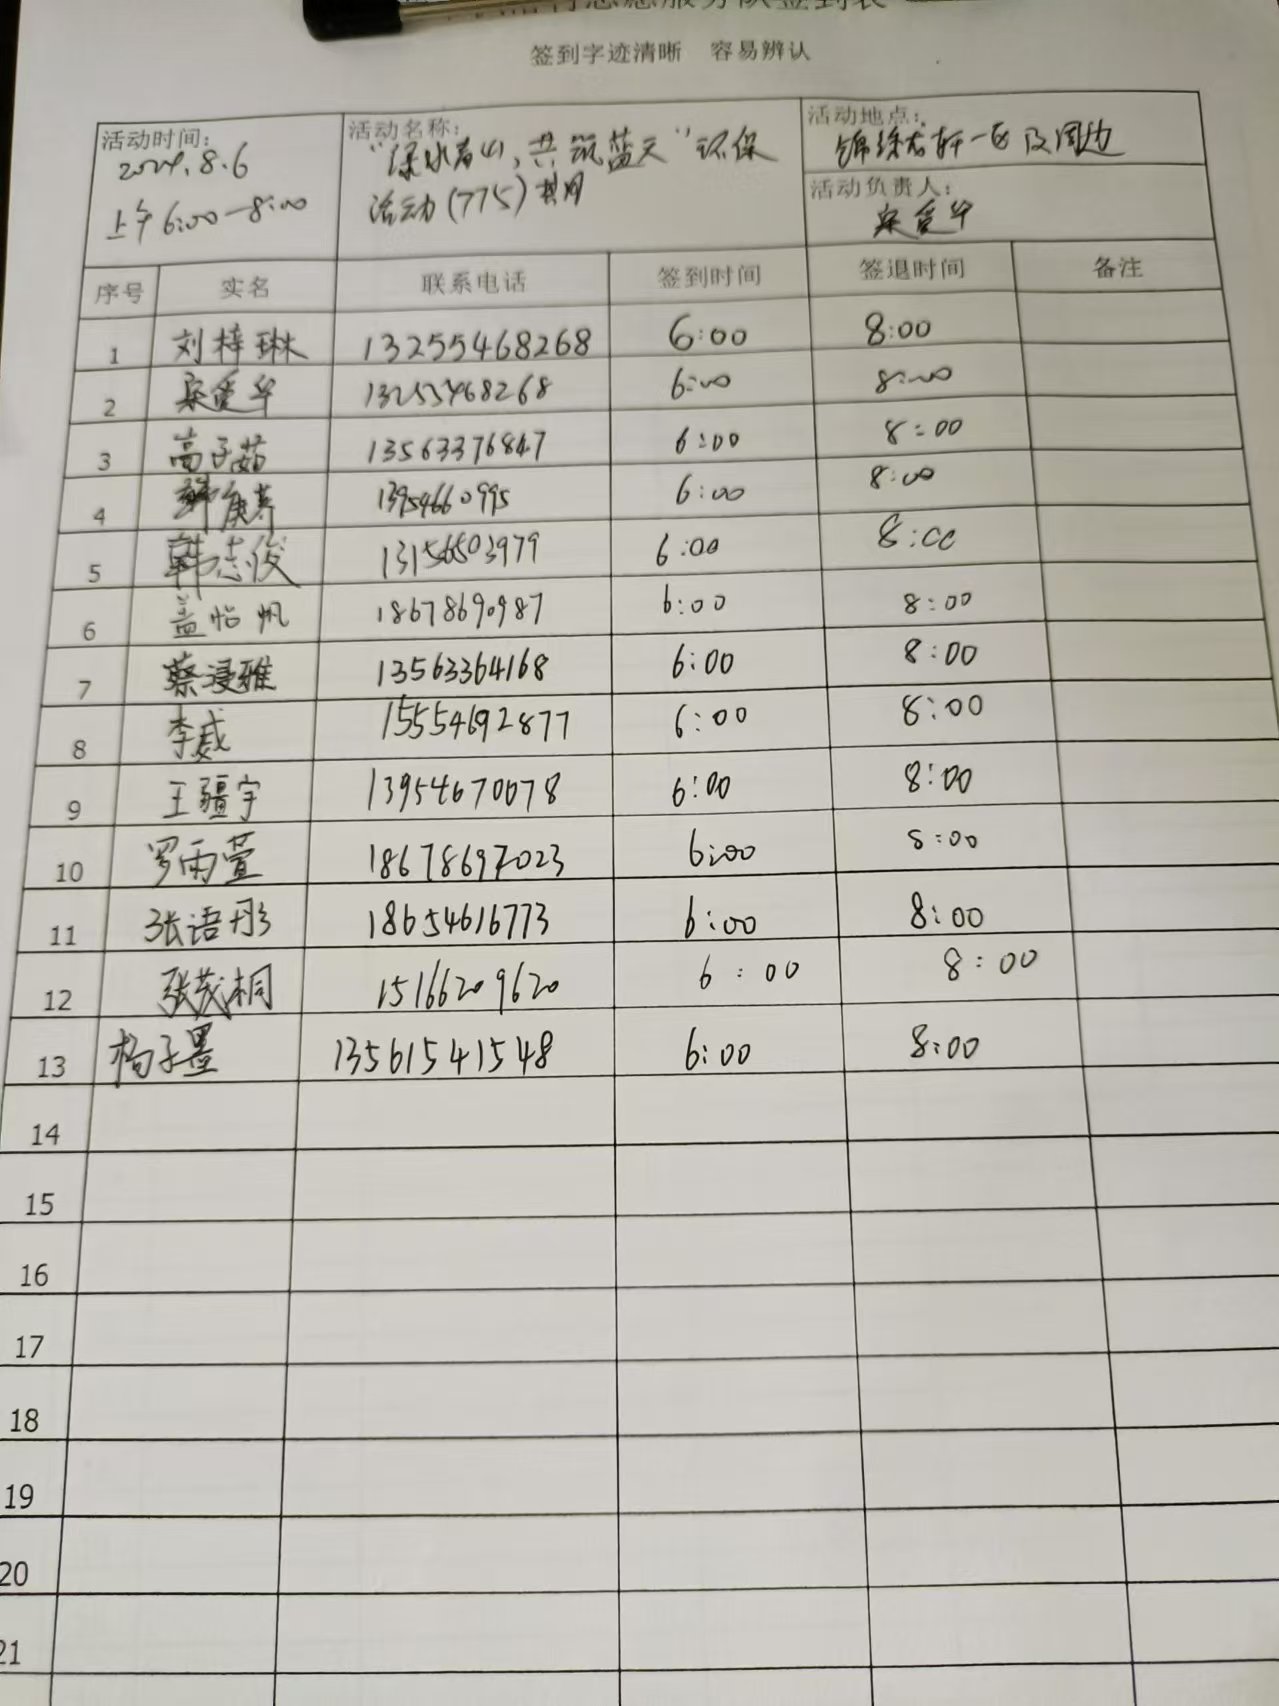 志愿服务队签到表
签到字迹清晰 容易辨认
活动时间：
2024.8.6
上午6:00—8:00
活动名称：
"绿水青山，共筑蓝天"环保
活动(775)其用
活动地点：
一区及周边
活动负责人：
爱华
序号 实名 联系电话 签到时间 签退时间 备注
1 刘梓琳 13255468268 6:00 8:00
2 爱华 13255468268 6:00 8:00
3 高子茹 13563376847 6:00 8:00
4 13954660995 6:00 8:00
5 韩志俊 13156503979 6:00 8:00
6 盖怡帆 18678690987 6:00 8:00
7 蔡浸雅 13563364168 6:00 8:00
8 李威 15554692877 6:00 8:00
9 王疆宇 13954670078 6:00 8:00
10 罗雨萱 18678697023 6:00 8:00
11 张语彤 18654616773 6:00 8:00
12 张茂桐 15166209620 6:00 8:00
13 杨子墨 13561541548 6:00 8:00
14
15
16
17
18
19
20
21